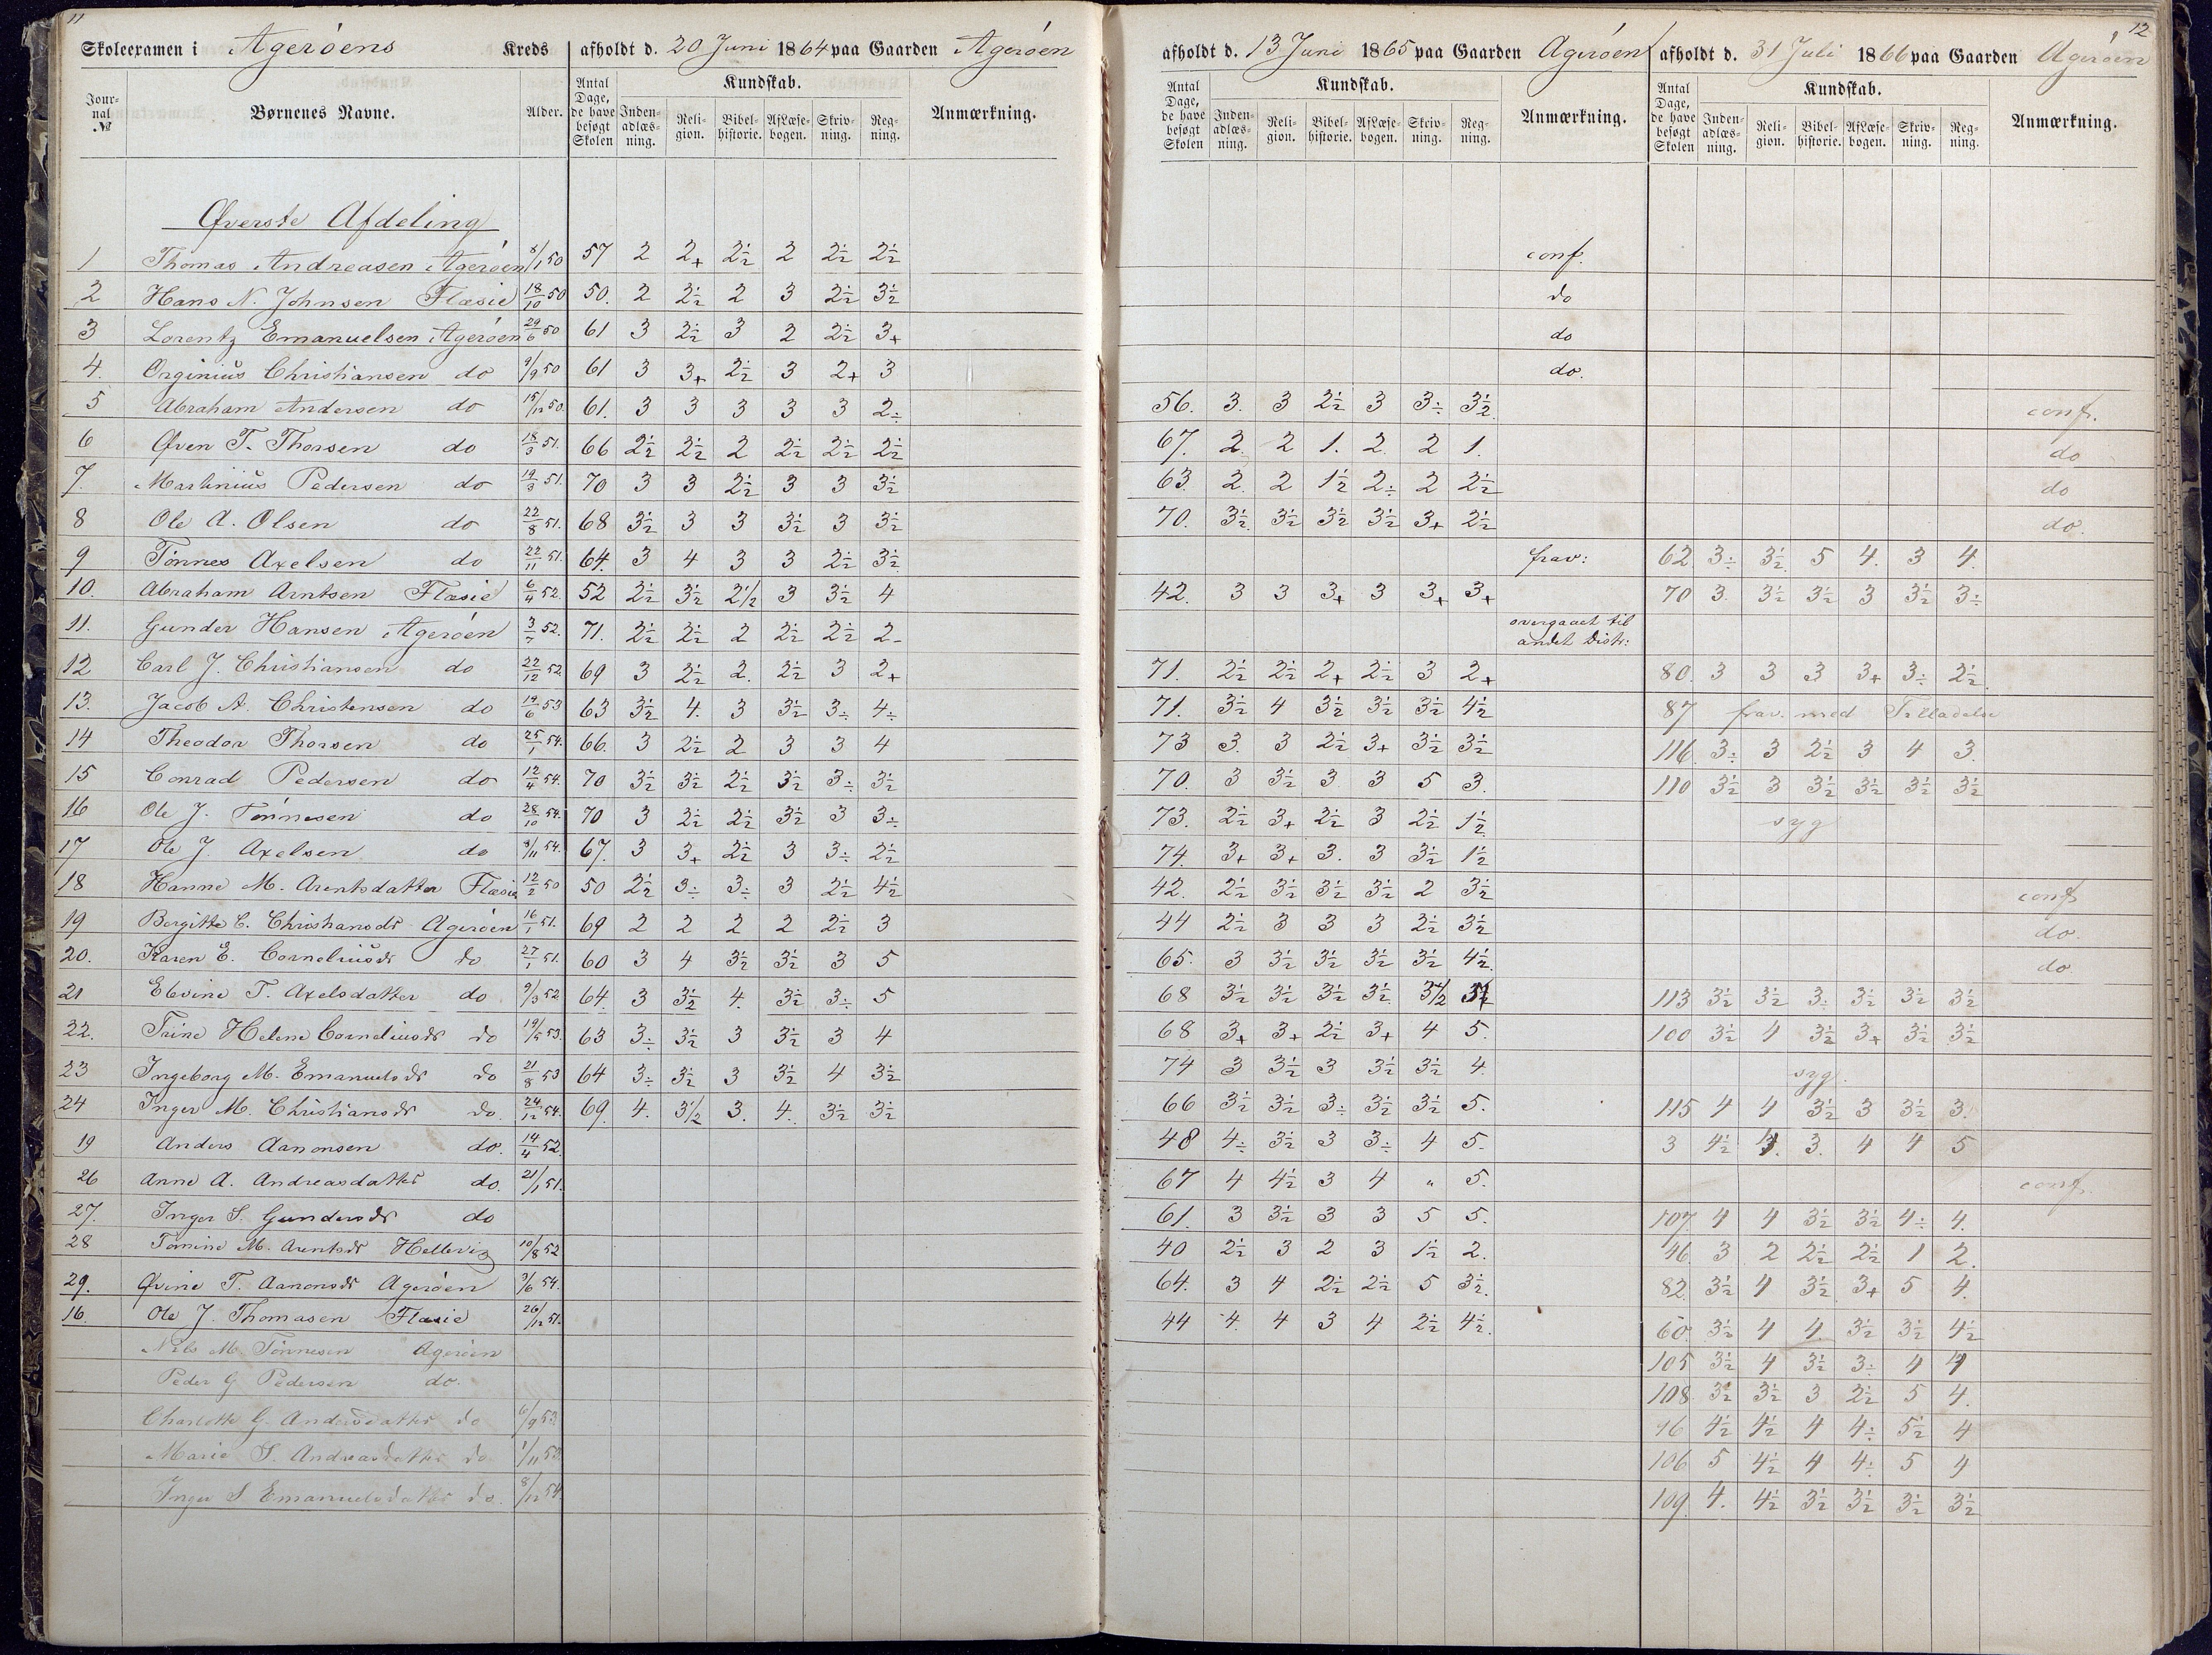 11
12
Skoleexamen i Agerøens Kreds afholdt d. 20 Juni 1864 paa Gaarden Agerøen
afholdt d. 13 Juni 1865 paa Gaarden Agerøen afholdt d. 31 Juli 1866 paa Gaarden Agerøen
Journal № Børnenes Navne. Alder. Antal Dage, de have besøgt Skolen Kundskab. Inden-adlæs-ning. Reli-gion. Bibel-historie. AfLæse-bogen. Skriv-ning. Reg-ning. Anmærkning.
Antal Dage, de have besøgt Skolen Kundskab. Inden-adlæs-ning. Reli-gion. Bibel-historie. AfLæse-bogen. Skriv-ning. Reg-ning. Anmærkning.
Antal Dage, de have besøgt Skolen Kundskab. Inden-adlæs-ning. Reli-gion. Bibel-historie. AfLæse-bogen. Skriv-ning. Reg-ning. Anmærkning.
Øverste Afdeling
1 Thomas Andreasen Agerøen 8/1 50 57 2 2+ 2½ 2 2½ 2½ conf.
2 Hans N. Johnsen Flæsie 18/10 50 50. 2 2½ 2 3 2½ 3½ do
3 Lorentz Emanuelsen Agerøen 29/6 50 61 3 2½ 3 2 2½ 3+ do
4. Orginius Christiansen do 9/9 50 61 3 3+ 2½ 3 2+ 3 do.
5 Abraham Andersen do 15/12 50. 61. 3 3 3 3 3 2÷ 56. 3. 3 2½ 3 3÷ 3½ conf.
6 Øven T. Thorsen do 18/3 51. 66 2½ 2½ 2 2½ 2½ 2½ 67. 2. 2 1. 2. 2 1. do
7. Martinius Pedersen do 19/3 51. 70 3 3 2½ 3 3 3½ 63. 2. 2 1½ 2÷ 2 2½ do
8 Ole A. Olsen do 22/8 51. 68 3½ 3 3 3½ 3 3½ 70. 3½ 3½ 3½ 3½ 3+ 2½ do.
9 Tønnes Axelsen do 22/11 51. 64. 3 4 3 3 2½ 3½ frav: 62 3÷ 3½ 5 4. 3 4.
10. Abraham Arntsen Flæsie 6/4 52. 52 2½ 3½ 2½ 3 3½ 4 42. 3 3 3+ 3 3+ 3+ 70 3. 3½ 3½ 3 3½ 3÷
11. Gunder Hansen Agerøen 3/7 52. 71. 2½ 2½ 2 2½ 2½ 2- overgaaet til andet Distr:
12 Carl J. Christiansen do 22/12 52. 69 3 2½ 2. 2½ 3 2+ 71. 2½ 2½ 2+ 2½ 3 2+ 80. 3 3 3 3+ 3÷ 2½
13. Jacob A. Christensen do 19/6 53 63 3½ 4. 3 3½ 3÷ 4÷ 71. 3½ 4 3½ 3½ 3½ 4½ 87 frav. med Tilladelse
14 Theodor Thorsen do 25/1 54. 66. 3 2½ 2 3 3 4 73 3. 3 2½ 3+ 3½ 3½ 116. 3÷ 3 2½ 3 4 3.
15 Conrad Pedersen do 12/4 54. 70 3½ 3½ 2½ 3½ 3÷ 3½ 70. 3 3½ 3 3 5 3. 110 3½ 3 3½ 3½ 3½ 3½
16 Ole J. Tønnesen do 28/10 54. 70 3 2½ 2½ 3½ 3 3÷ 73. 2½ 3+ 2½ 3 2½ 1½ syg
17 Ole J. Axelsen do 8/11 54. 67. 3 3+ 2½ 3 3÷ 2½ 74. 3+ 3+ 3. 3 3½ 1½
18 Hanne M. Arentsdatter Flæsie 12/2 50 50 2½ 3÷ 3÷ 3 2½ 4½ 42. 2½ 3½ 3½ 3½ 2 3½ conf
19 Bergitte C. Christiansdr Agerøen 16/1 51. 69 2 2 2 2 2½ 3 44 2½ 3 3 3 2½ 3½ do.
20. Karen E. Corneliusdr do 27/1 51. 60 3 4 3½ 3½ 3 5 65. 3 3½ 3½ 3½ 3½ 4½ do
21 Elevine T. Axelsdatter do 9/3 52 64. 3 3½ 4. 3½ 3÷ 5 68 3½ 3½ 3½ 3½ 3½ 3½ 113 3½ 3½ 3÷ 3½ 3½ 3½
22. Trine Helene Corneliusdr do 19/5 53. 63 3÷ 3½ 3 3½ 3 4 68 3+ 3+ 2½ 3+ 4 5. 100 3½ 4 3½ 3+ 3½ 3½
23 Ingeborg M. Emanuelsdr do 21/8 53 64 3÷ 3½ 3 3½ 4 3½ 74 3 3½ 3 3½ 3½ 4. syg.
24 Inger M. Christiansdr do. 24/12 54. 69. 4. 3½ 3. 4. 3½ 3½ 66 3½ 3½ 3÷ 3½ 3½ 5. 115 4 4 3½ 3 3½ 3.
19 Anders Aanonsen do. 14/4 52. 48 4÷ 3½ 3 3÷ 4 5. 3 4½ 3. 3. 4 4 5
26 Anne A. Andreasdatter do. 21/1 51. 67 4 4½ 3 4 " 5. conf.
27. Inger S. Gundersdr do 61. 3 3½ 3 3 5 5. 107 4 4 3½ 3½ 4÷ 4.
28 Tomine M. Arentsdr Hellevig 10/8 52 40 2½ 3 2 3 1½ 2. 46 3 2 2½ 2½ 1 2.
29. Øvine T. Aanonsdr Agerøen 3/6 54. 64. 3 4 2½ 2½ 5 3½ 82. 3½ 4 3½ 3+ 5 4.
16. Ole J. Thomasen Flæsie 26/12 51. 44 4. 4 3 4 2½ 4½ 60. 3½ 4 4 3½ 3½ 4½
Nils M. Tønnesen Agerøen 105 3½ 4 3½ 3÷ 4 4
Peder G Pedersen do. 108. 3½ 3½ 3 2½ 5 4.
Charlotte G. Andersdatter do 6/9 53. 96 4½ 4½ 4 4÷ 5½ 4
Marie S. Andreasdatter do 1/11 53. 106 5 4½ 4 4÷ 5 4
Inger S Emanuelsdatter do. 8/12 54. 109. 4. 4½ 3½ 3½ 3½ 3½